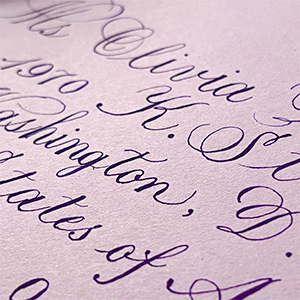 Ms Olivia
1970 K. St
Washington, D.
d States of A